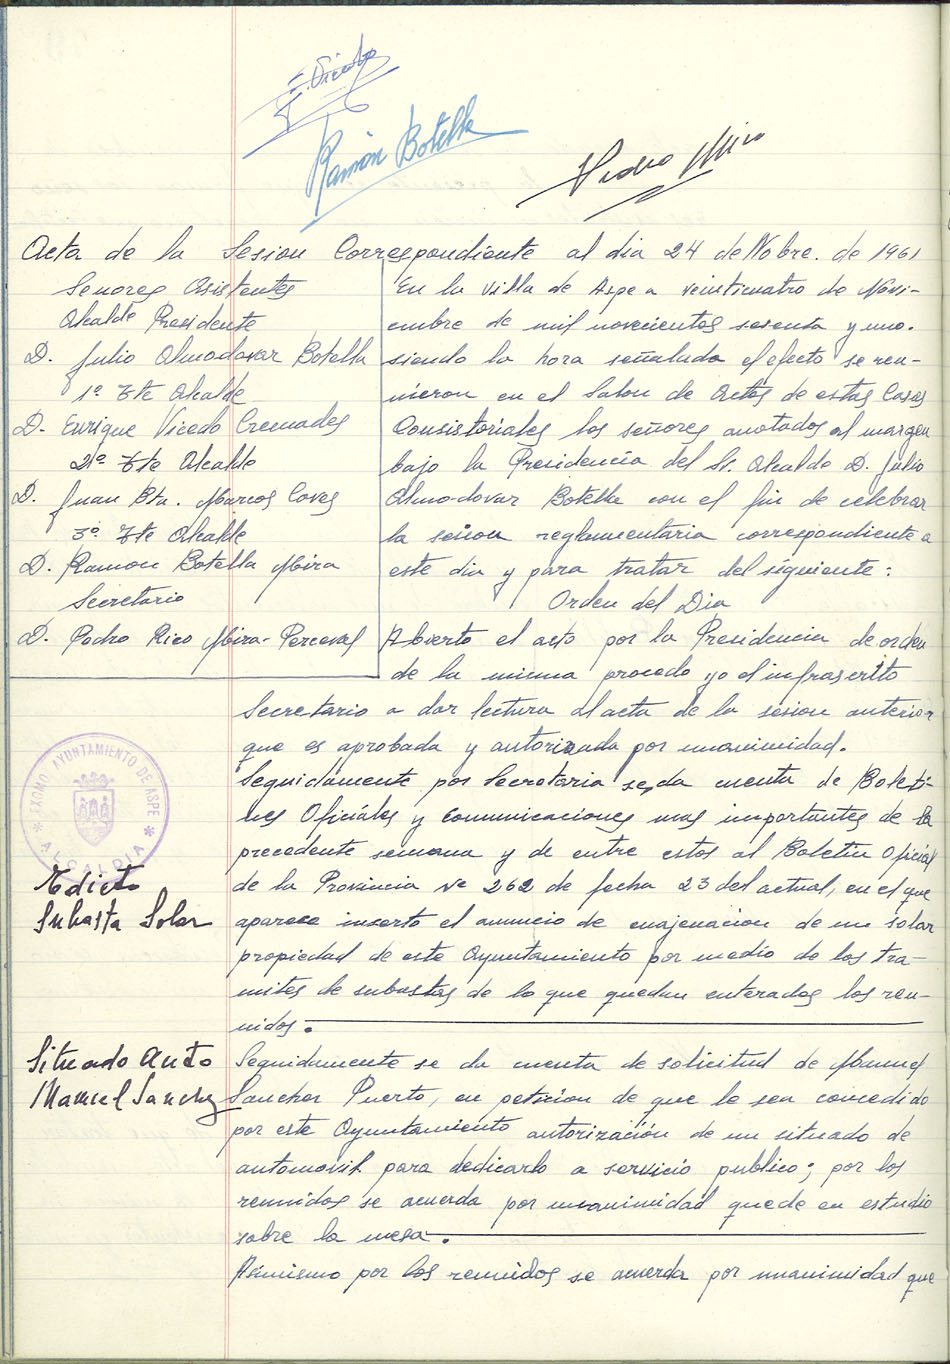 E. Vicedo
Ramón Botella
Pedro Mira
Acta de la Sesion Correspondiente al dia 24 de Nobre. de 1961
Senores Asistentes
Alcalde Presidente
D. Julio Almodovar Botella
1º Tte Alcalde
D. Enrique Vicedo Cremades
2º Tte Alcalde
D. Juan Bta. Marcos Caves
3º Tte Alcalde
D. Ramon Botella Mira
Secretario
D. Pedro Rico Mira-Perceval
En la Villa de Aspe a veinticuatro de Novi-
embre de mil novecientos sesenta y uno.
siendo la hora señalada al efecto se reu-
nieron en el Salon de Actos de estas Casas
Consistoriales los señores anotados al margen
bajo la Presidencia del Sr. Alcalde D. Julio
Almodovar Botella con el fin de celebrar
la sesion reglamentaria correspondiente a
este dia y para tratar del siguiente:
Orden del Dia
Abierto el acto por la Presidencia de orden
de la misma procedo yo el infrascrito
Secretario a dar lectura al acta de la sesion anterior
que es aprobada y autorizada por unanimidad.
Seguidamente por Secretaria se da cuenta de Boleti-
nes Oficiales y comunicaciones mas importantes de la
precedente semana y de entre estos al Boletin Oficial
de la Provincia nº 262 de fecha 23 del actual, en el que
aparece inserto el anuncio de enajenacion de un solar
propiedad de este Ayuntamiento por medio de los tra-
mites de subastas de lo que quedan enterados los reu-
nidos.
EXCMO AYUNTAMIENTO DE ASPE
* ALCALDIA *
Edicto
Subasta Solar
Situado Auto
Manuel Sanchez
Seguidamente se da cuenta de solicitud de Manuel
Sanchez Puerto, en peticion de que le sea concedido
por este Ayuntamiento autorización de un situado de
automovil para dedicarlo a servicio publico; por los
reunidos se acuerda por unanimidad quede en estudio
sobre la mesa.
Asimismo por los reunidos se acuerda por unanimidad que